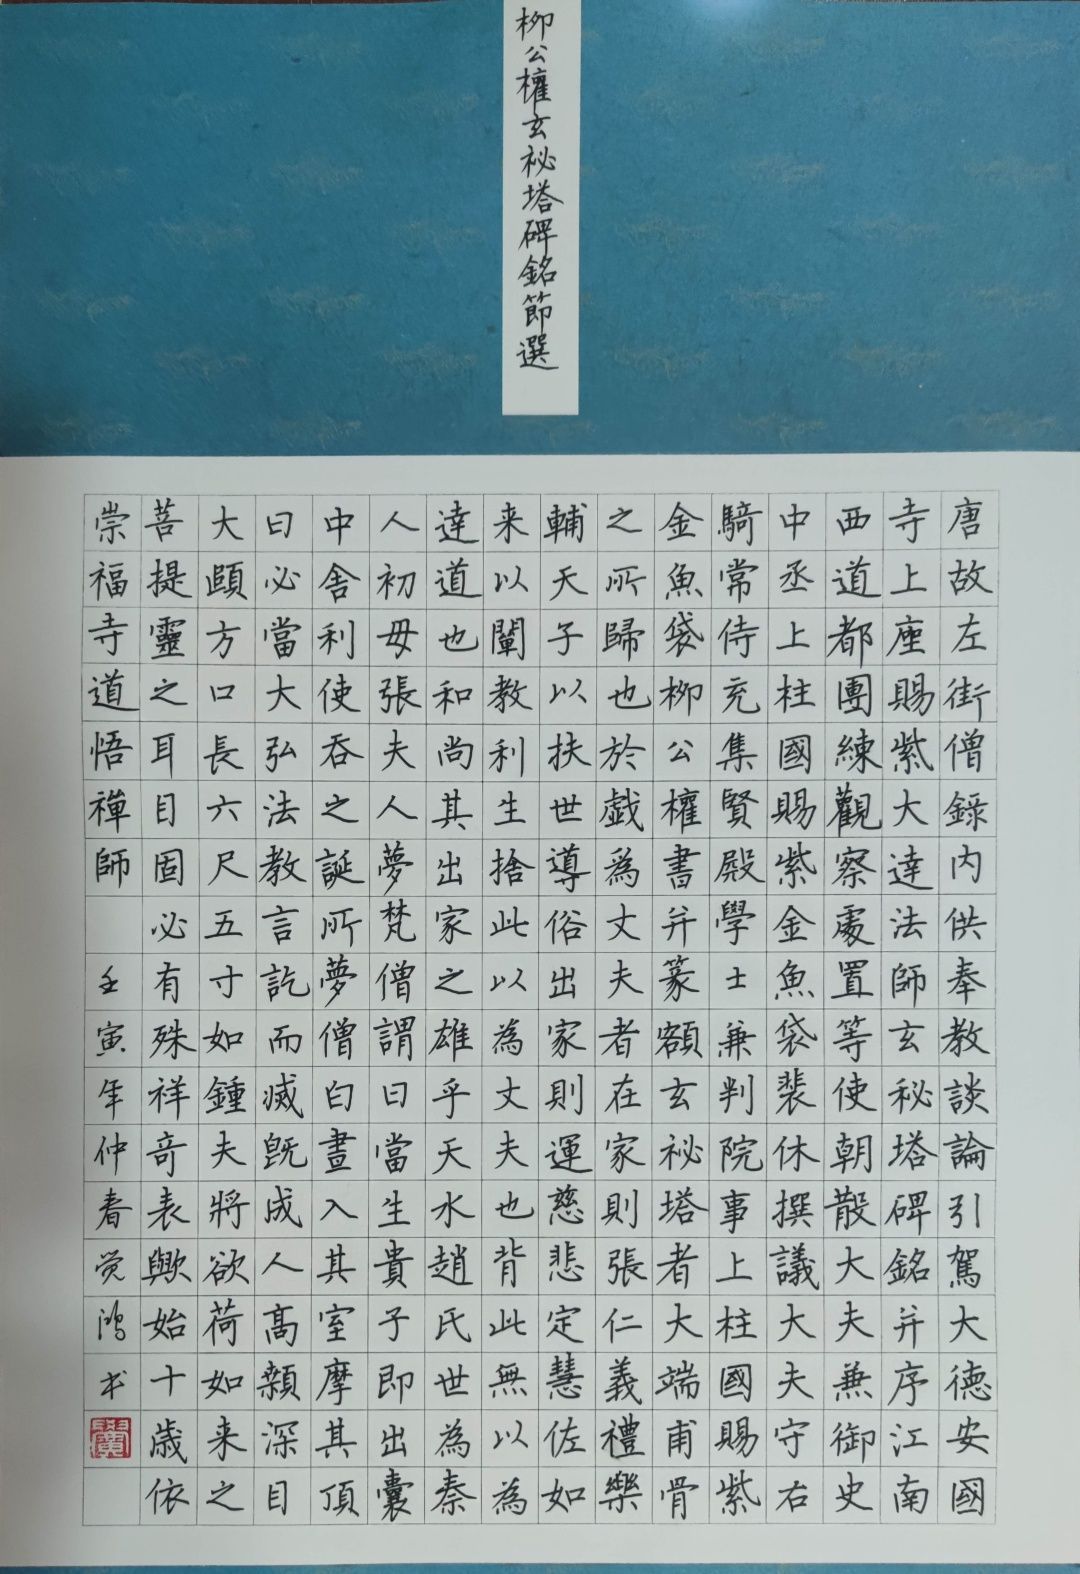 柳公權玄祕塔碑銘節選
唐故左街僧錄內供奉教談論引駕大德安國
寺上座賜紫大達法師玄秘塔碑銘并序江南
西道都團練觀察處置等使朝散大夫兼御史
中丞上柱國賜紫金魚袋裴休撰議大夫守右
騎常侍充集賢殿學士兼判院事上柱國賜紫
金魚袋柳公權書并篆額玄祕塔者大端甫骨
之所歸也於戲為丈夫者在家則張仁義禮樂
輔天子以扶世導俗出家則運慈悲定慧佐如
来以闡教利生捨此以為丈夫也背此無以為
達道也和尚其出家之雄乎天水趙氏世為秦
人初毋張夫人夢梵僧謂曰當生貴子即出囊
中舍利使吞之誕所夢僧白晝入其室摩其頂
曰必當大弘法教言訖而滅既成人高顙深目
大頤方口長六尺五寸如鍾夫將欲荷如来之
菩提靈之耳目固必有殊祥奇表歟始十歲依
崇福寺道悟禪師 壬寅年仲春覺鴻书